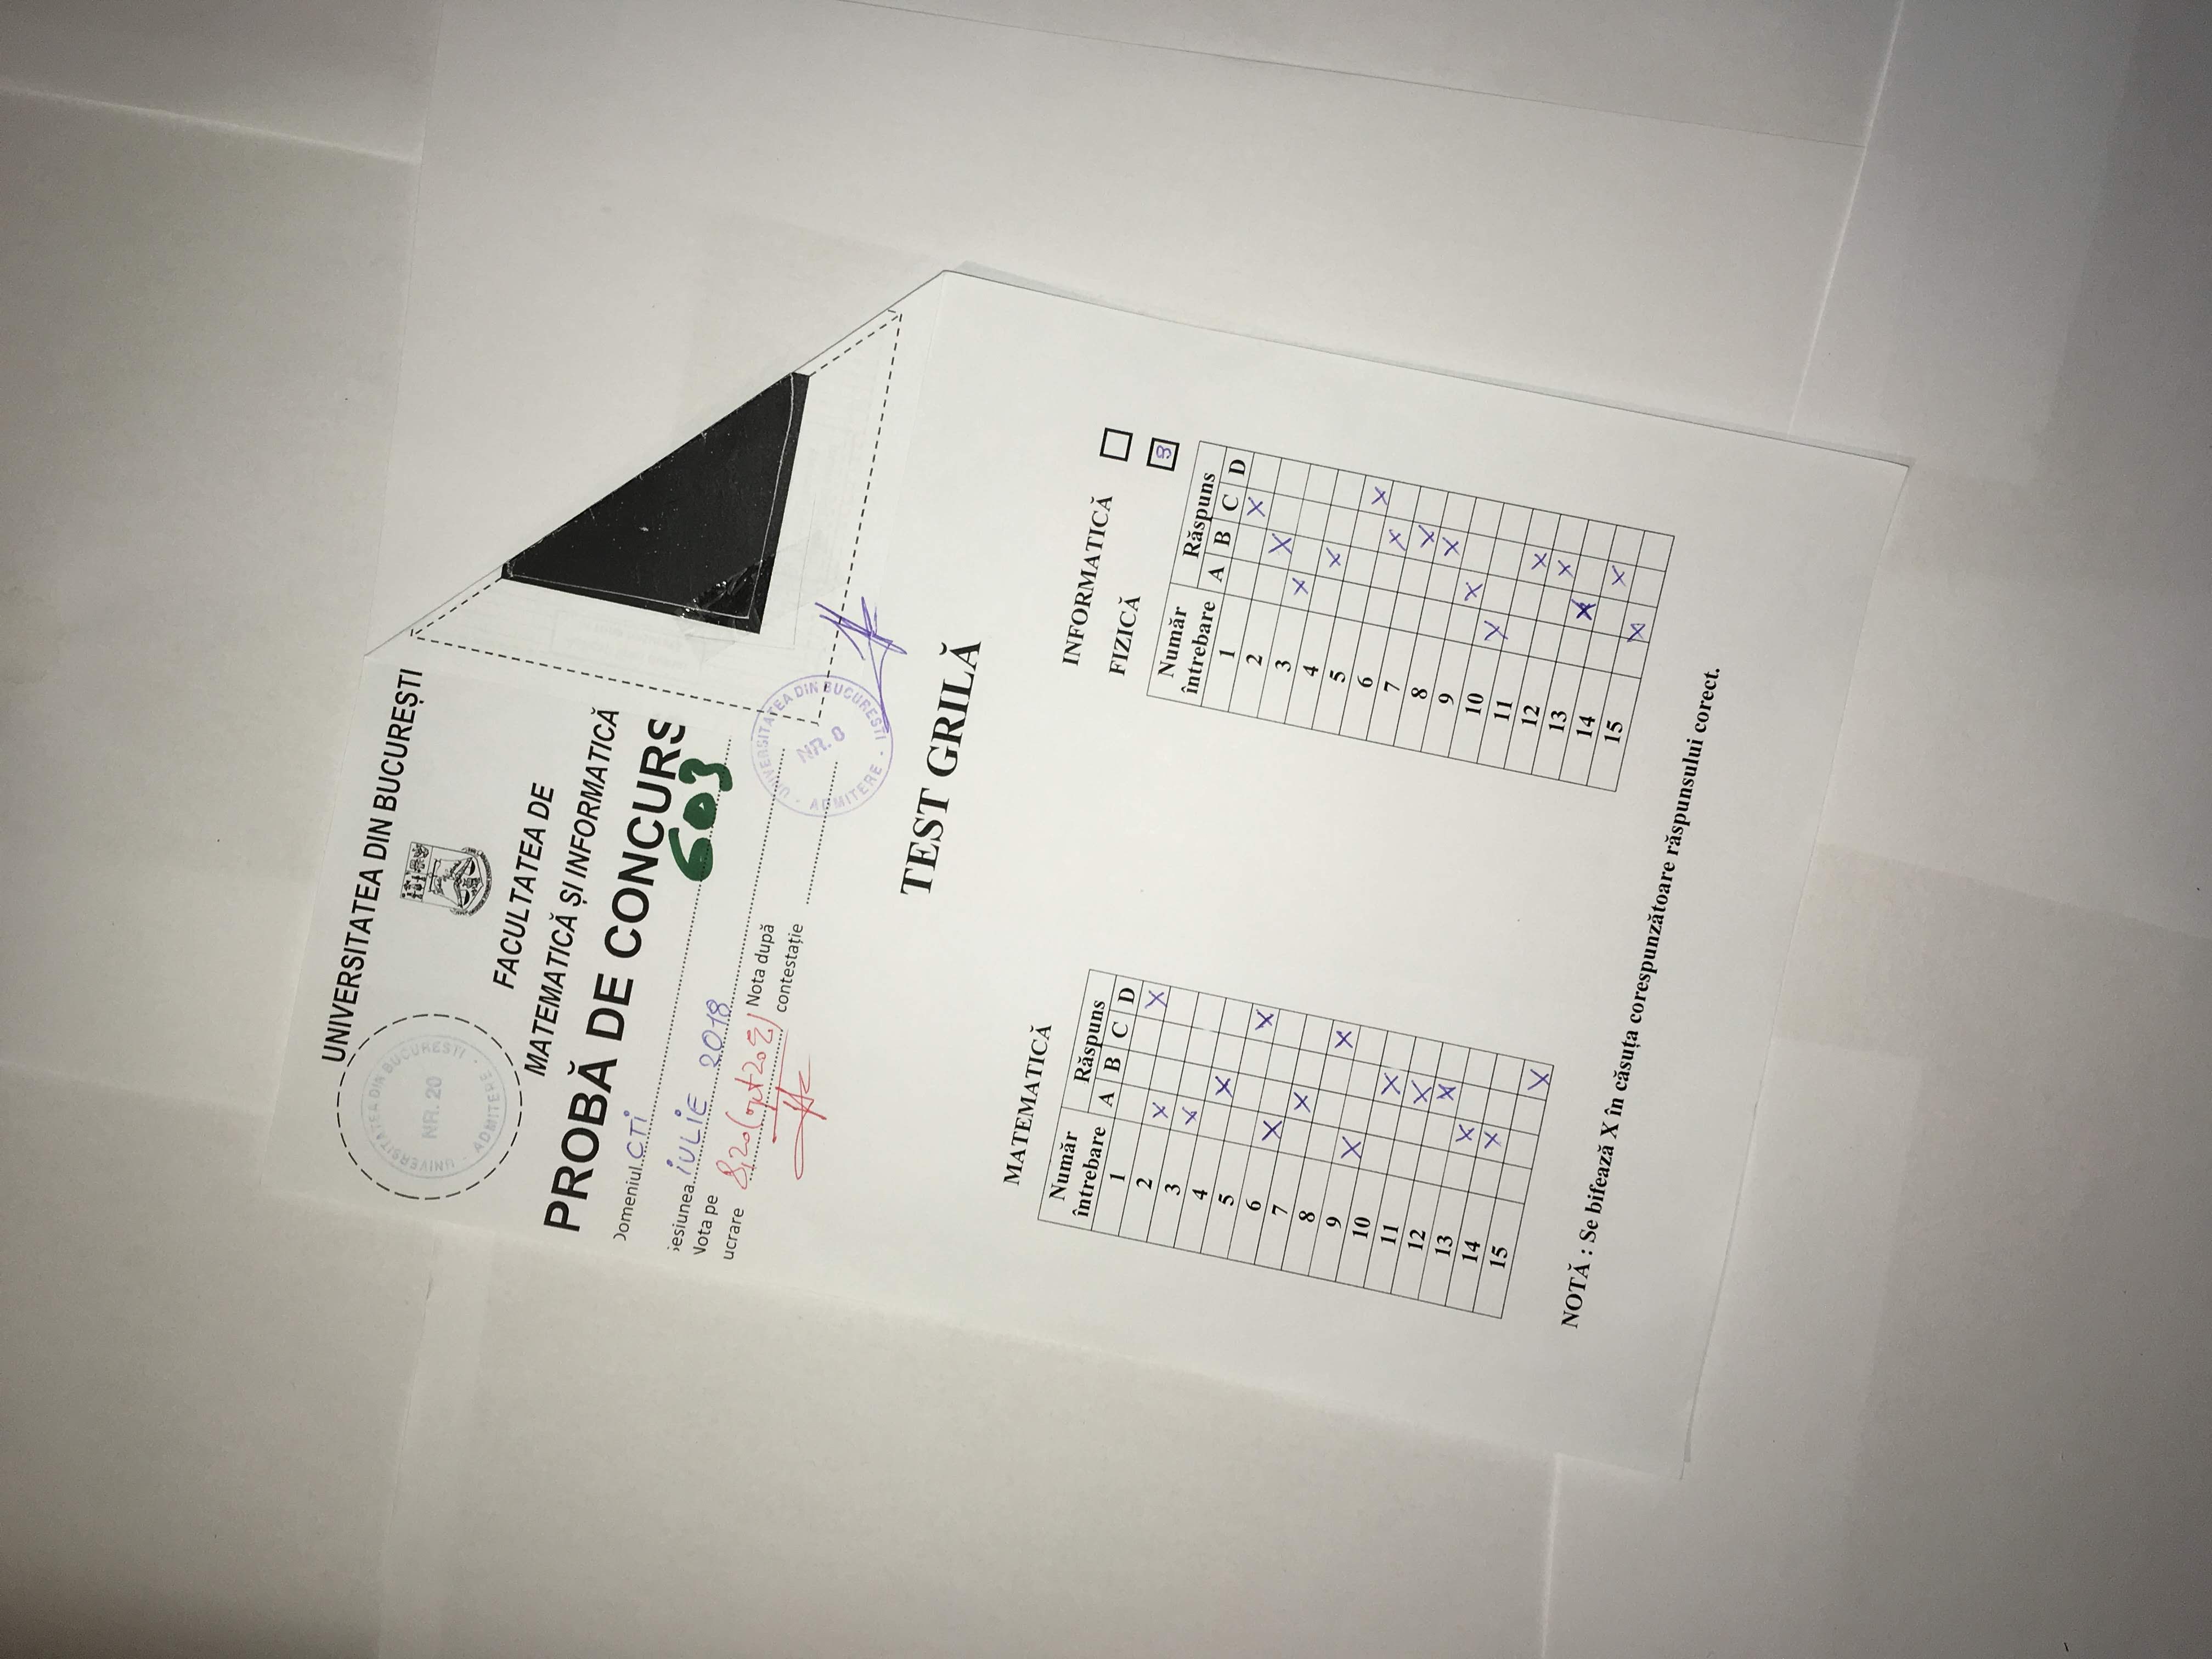 UNIVERSITATEA DIN BUCUREȘTI
UNIVERSITATEA DIN BUCURESTI
NR. 20
ADMITERE
FACULTATEA DE
MATEMATICĂ ȘI INFORMATICĂ
PROBĂ DE CONCURS
Domeniul CTi
603
Sesiunea iULiE 2018
Nota pe
ucrare 8,20 (opt 20%)
Nota după
contestație
UNIVERSITATEA DIN BUCURESTI
NR. 0
ADMITERE
TEST GRILĂ
MATEMATICĂ
Număr întrebare Răspuns
A B C D
1 X
2 X
3 X
4 X
5 X
6 X
7 X
8 X
9 X
10 X
11 X
12 X
13 X
14 X
15 X
INFORMATICĂ
FIZICĂ 3
Număr întrebare Răspuns
A B C D
1 X
2 X
3 X
4 X
5 X
6 X
7 X
8 X
9 X
10 X
11 X
12 X
13 X
14 X
15 X
NOTĂ : Se bifează X în căsuța corespunzătoare răspunsului corect.